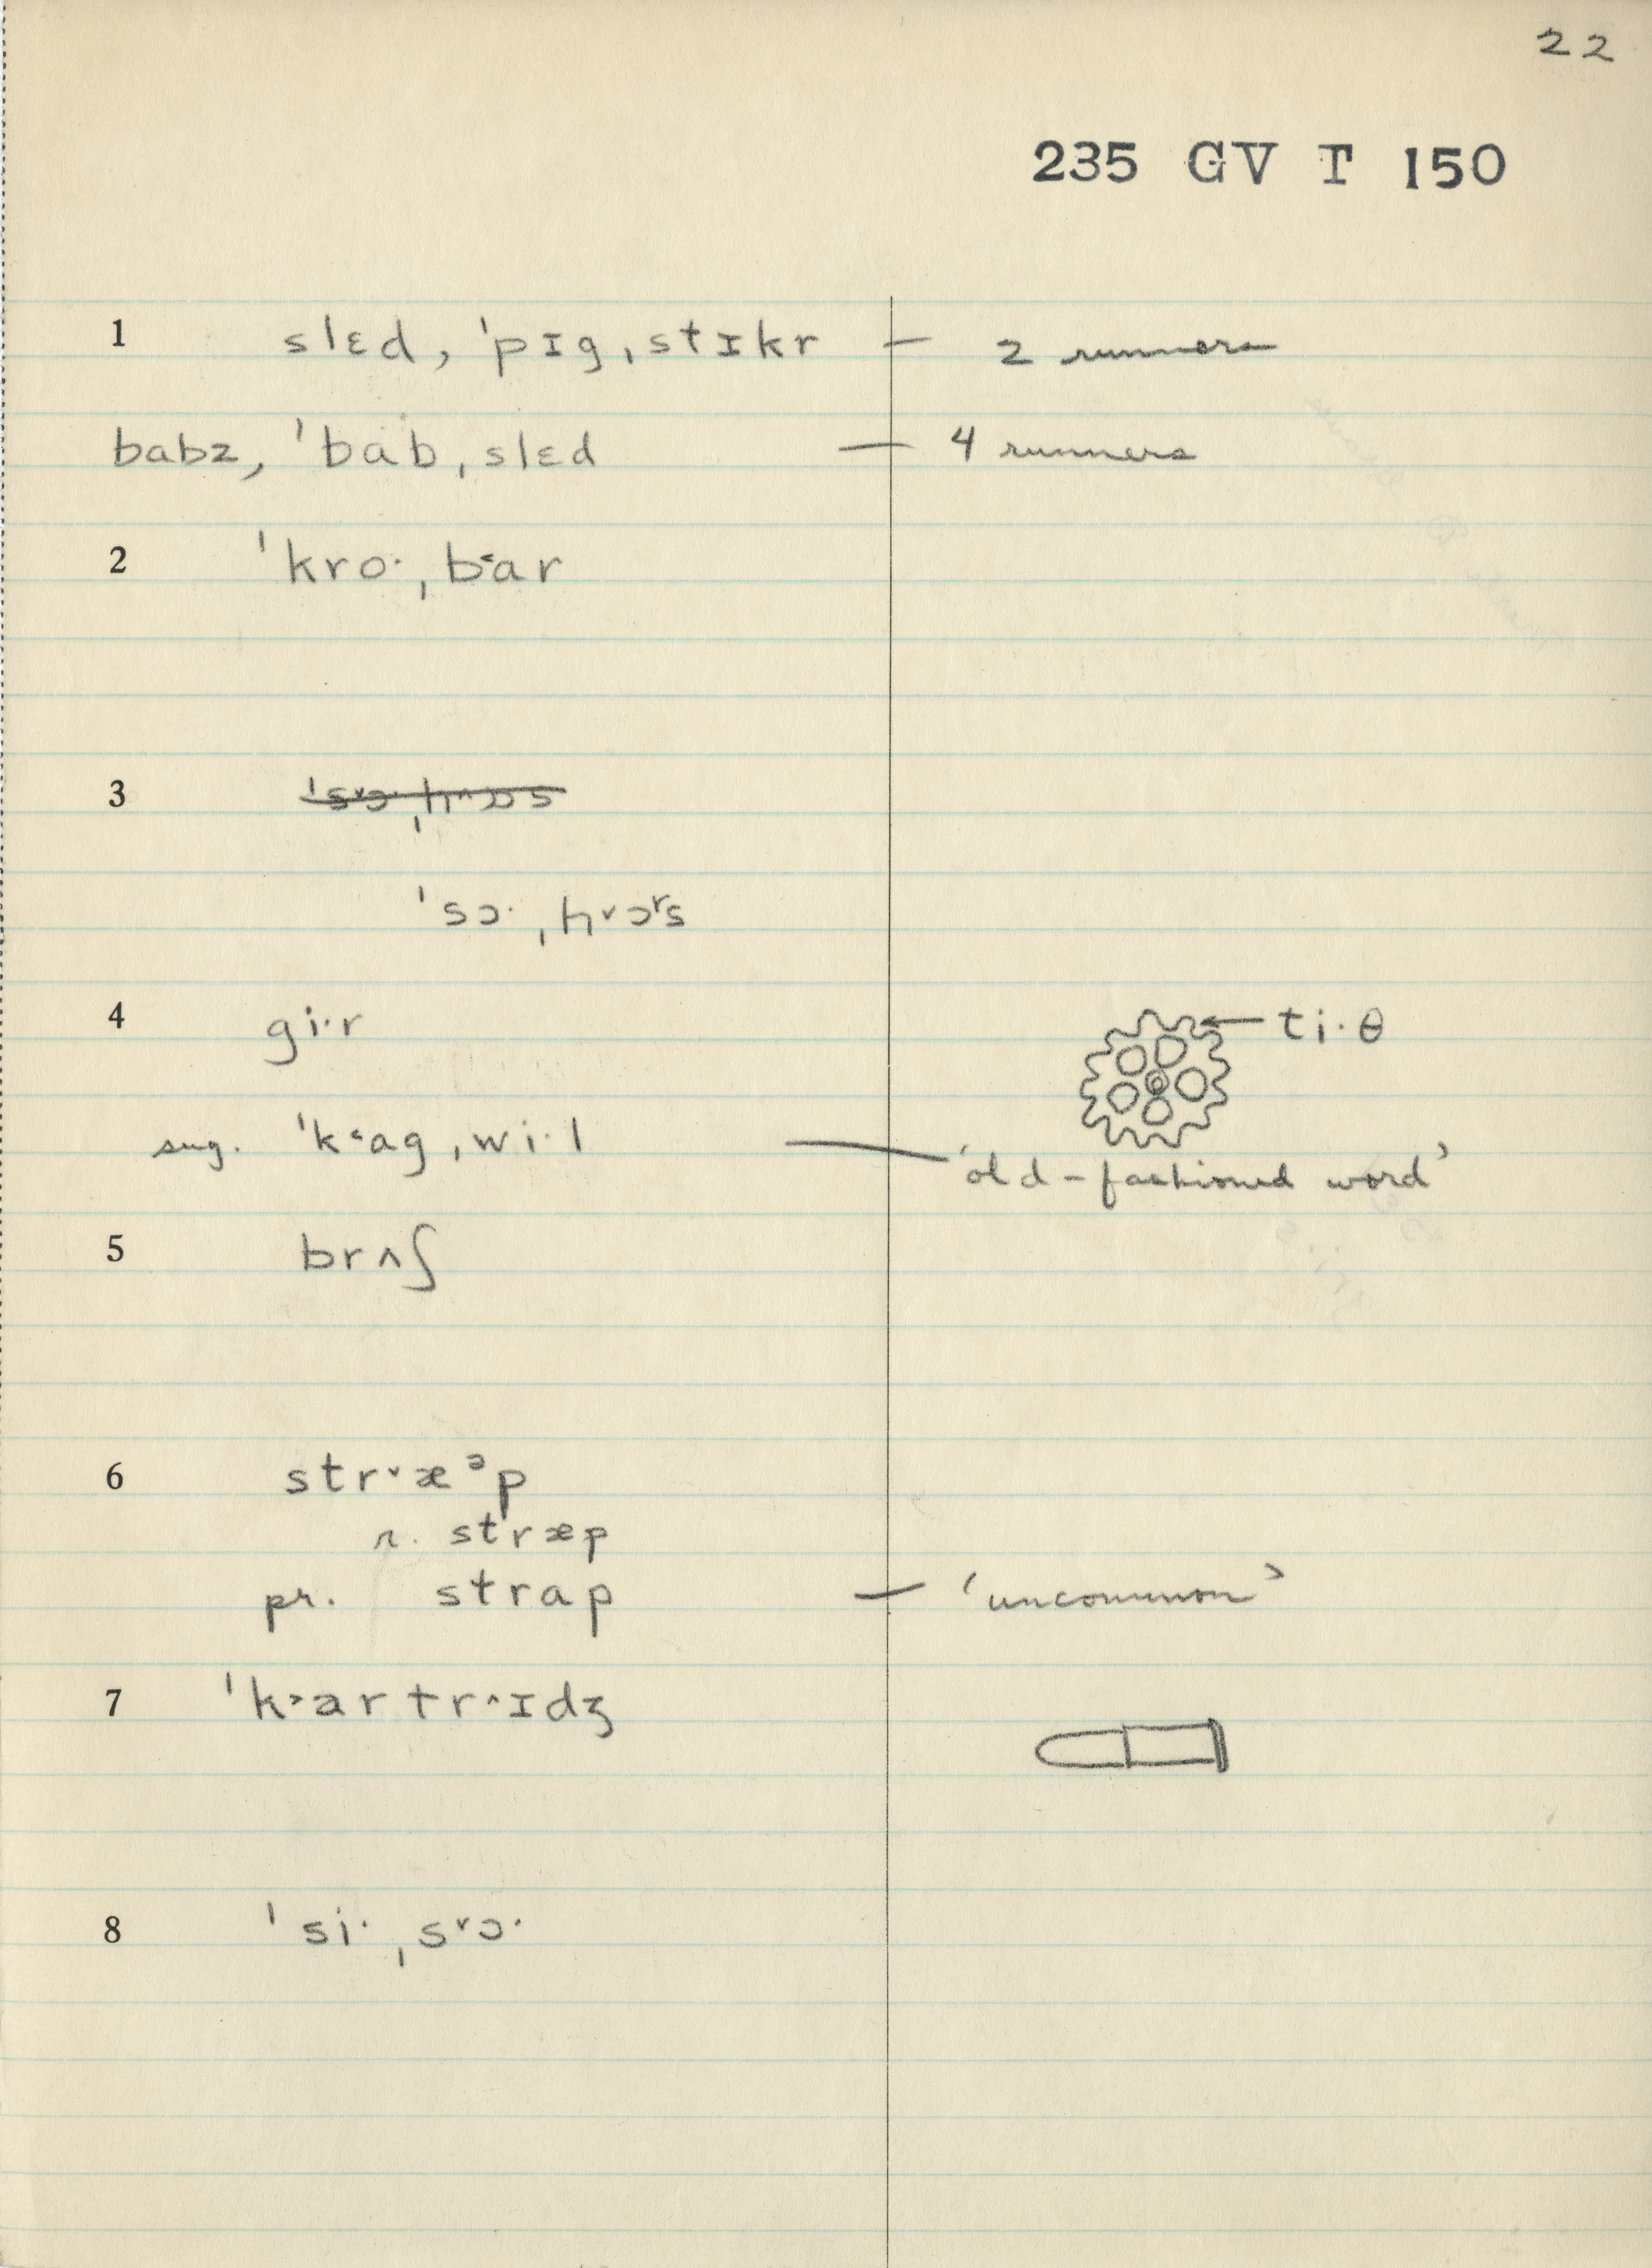 22
235 GV T 150
1 slɛd, ˈpɪgˌstɪkr — 2 runners
babz, ˈbabˌslɛd — 4 runners
2 ˈkro·ˌb˂ar
3
ˈsɔ·ˌh˅ɔʳs
4 gi·r ti·θ
sug. ˈk˂agˌwi·l — 'old-fashioned word'
5 brʌʃ
6 str˅æᵊp
r. stræp
pr. strap — 'uncommon'
7 ˈk˃artr˄ɪdʒ
8 ˈsi·ˌs˅ɔ·